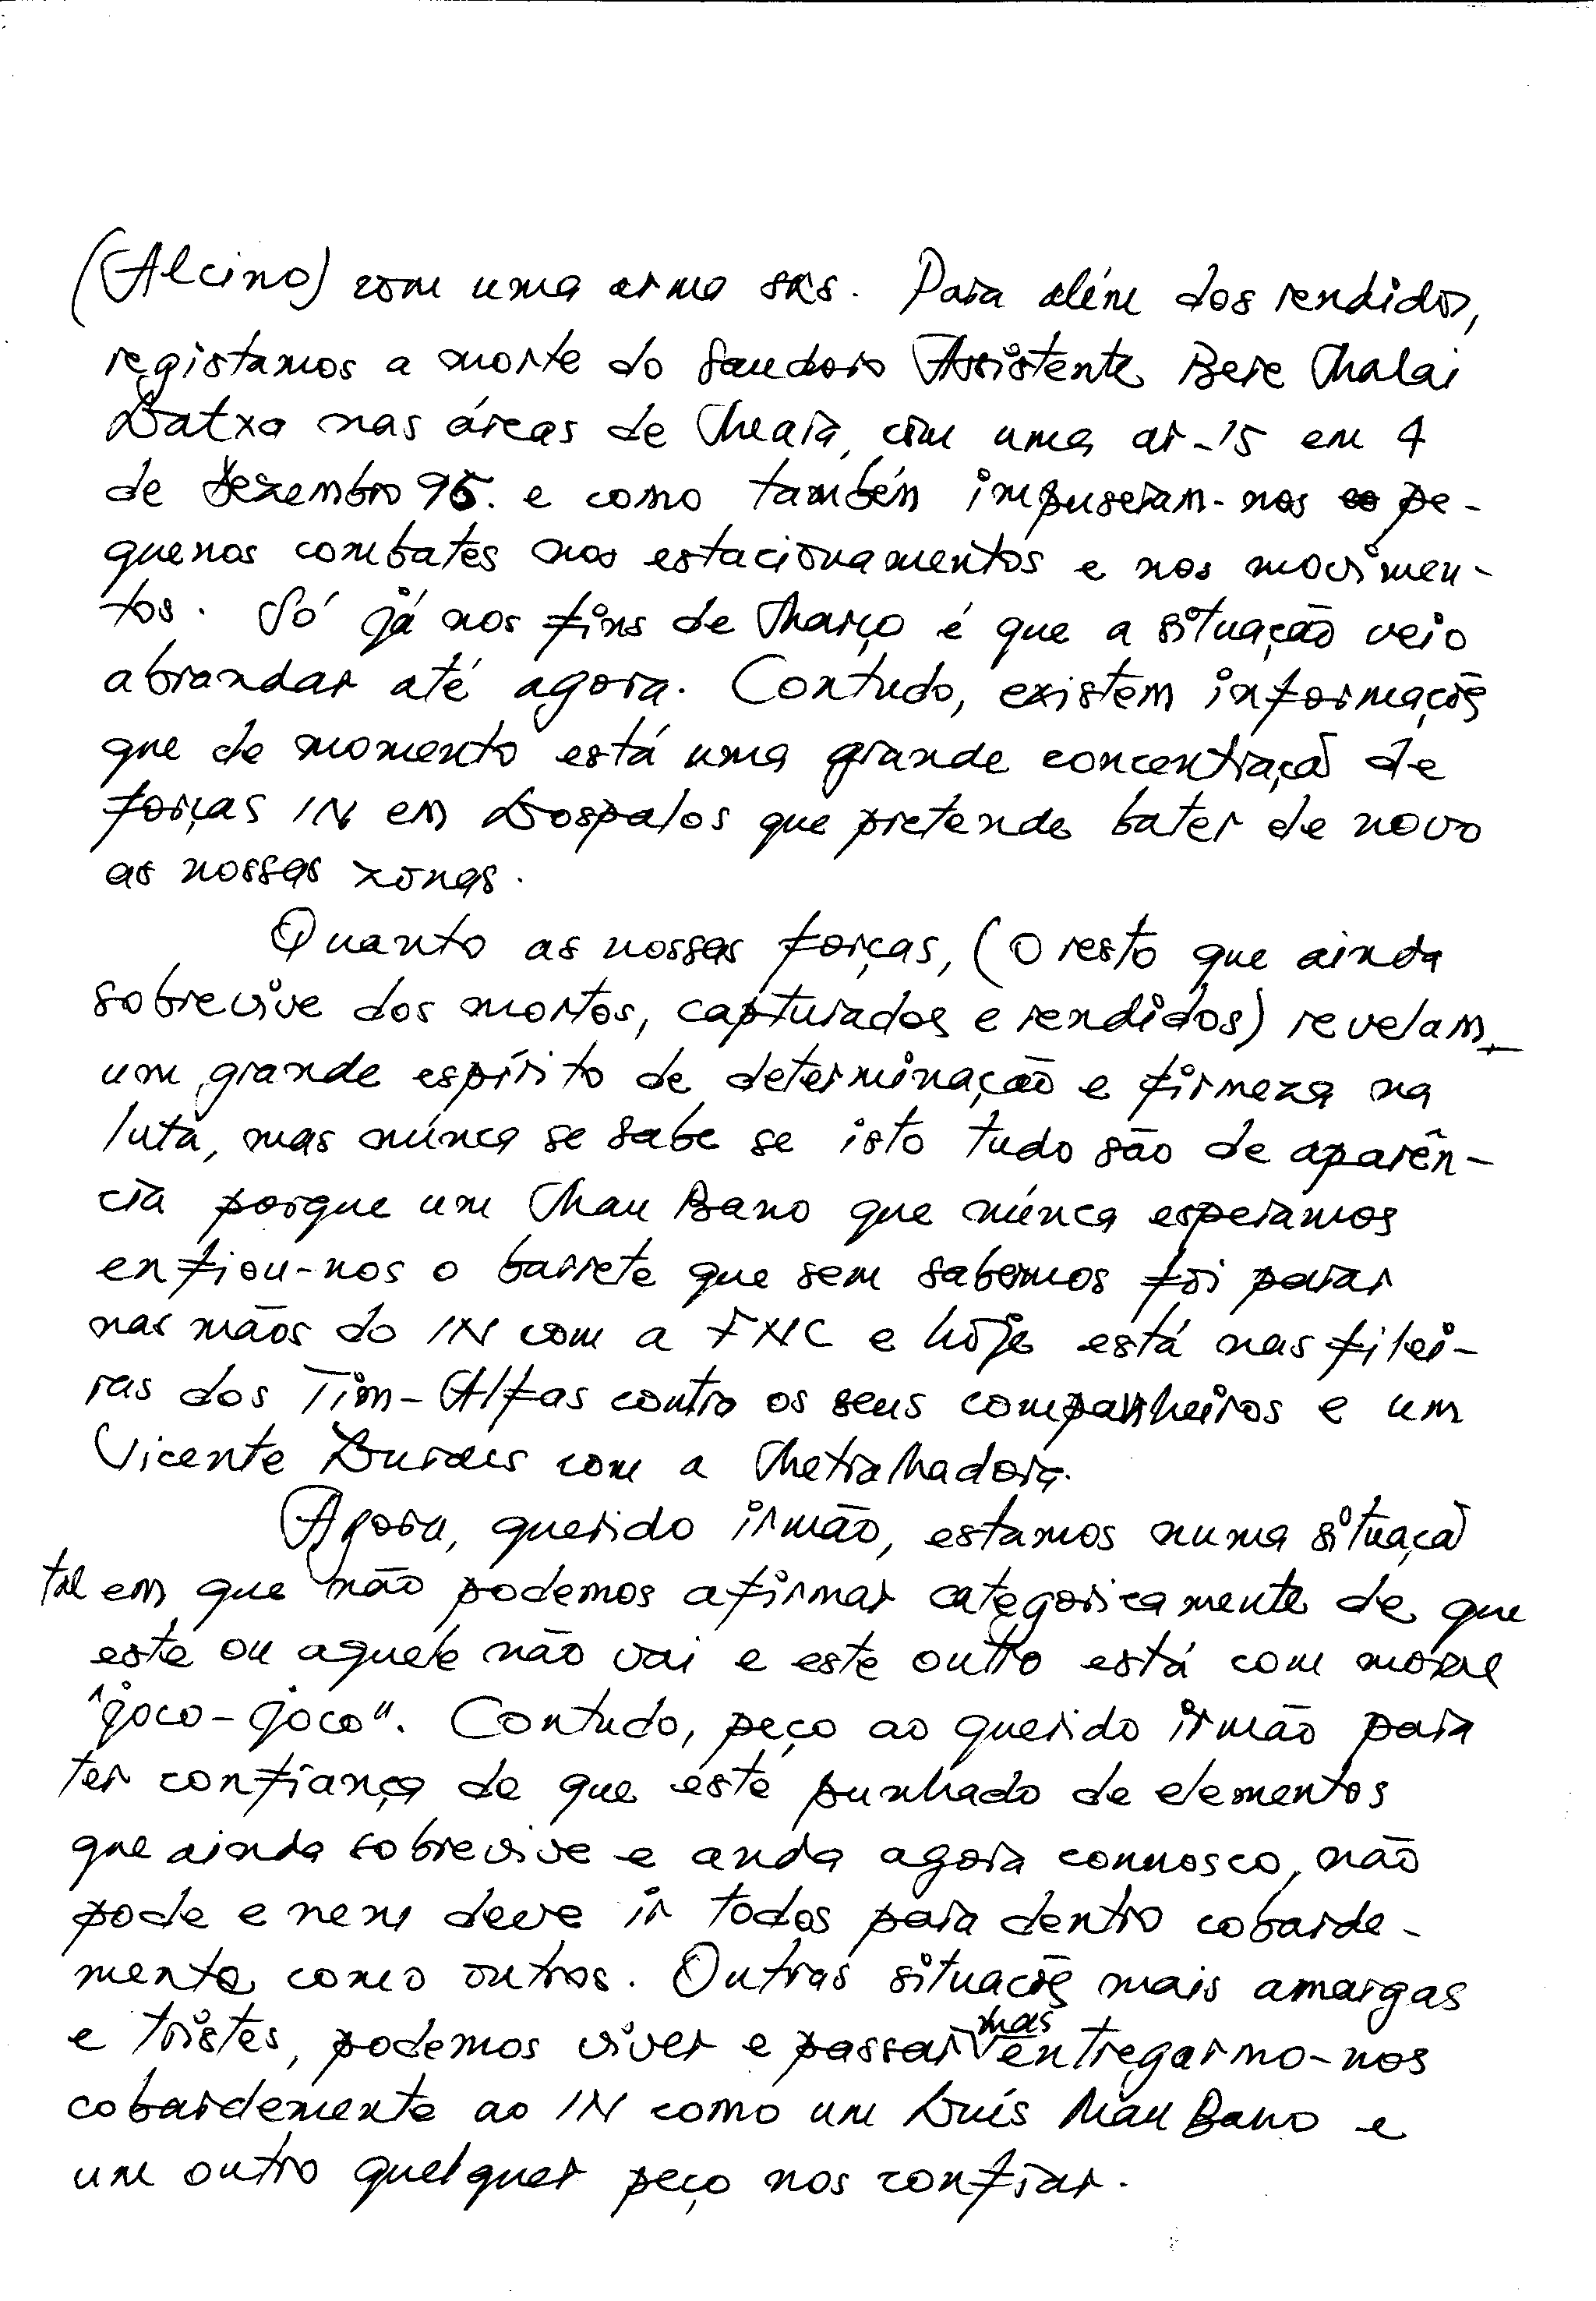 (Alcino) com uma arma sks. Para além dos rendidos,
registamos a morte do saudoso Assistente Bere Malai
Latxa nas áreas de Meara, com uma ar-15 em 4
de dezembro 95. e como também impuseram-nos pe-
quenos combates nos estacionamentos e nos movimen-
tos. Só já nos fins de Março é que a situação veio
abrandar até agora. Contudo, existem informações
que de momento está uma grande concentração de
forças IN em Lospalos que pretende bater de novo
as nossas zonas.
Quanto as nossas forças, (o resto que ainda
sobrevive dos mortos, capturados e rendidos) revelam
um grande espírito de determinação e firmeza na
luta, mas núnca se sabe se isto tudo são de aparên-
cia porque um Mau Bano que núnca esperamos
enfiou-nos o barrete que sem sabermos foi parar
nas mãos do IN com a FNC e hoje está nas filei-
ras dos Tim-Alfas contra os seus companheiros e um
Vicente Duraes com a Metralhadora.
Agora, querido irmão, estamos numa situação
tal em que não podemos afirmar categoricamente de que
este ou aquele não vai e este outro está com moral
"joco-joco". Contudo, peço ao querido irmão para
ter confiança de que este punhado de elementos
que ainda sobrevive e anda agora connosco, não
pode e nem deve ir todos para dentro cobarde-
mente como outros. Outras situações mais amargas
e tristes, podemos viver e passar mas entregarmo-nos
cobardemente ao IN como um Luís Mau Bano e
um outro qualquer peço nos confiar.